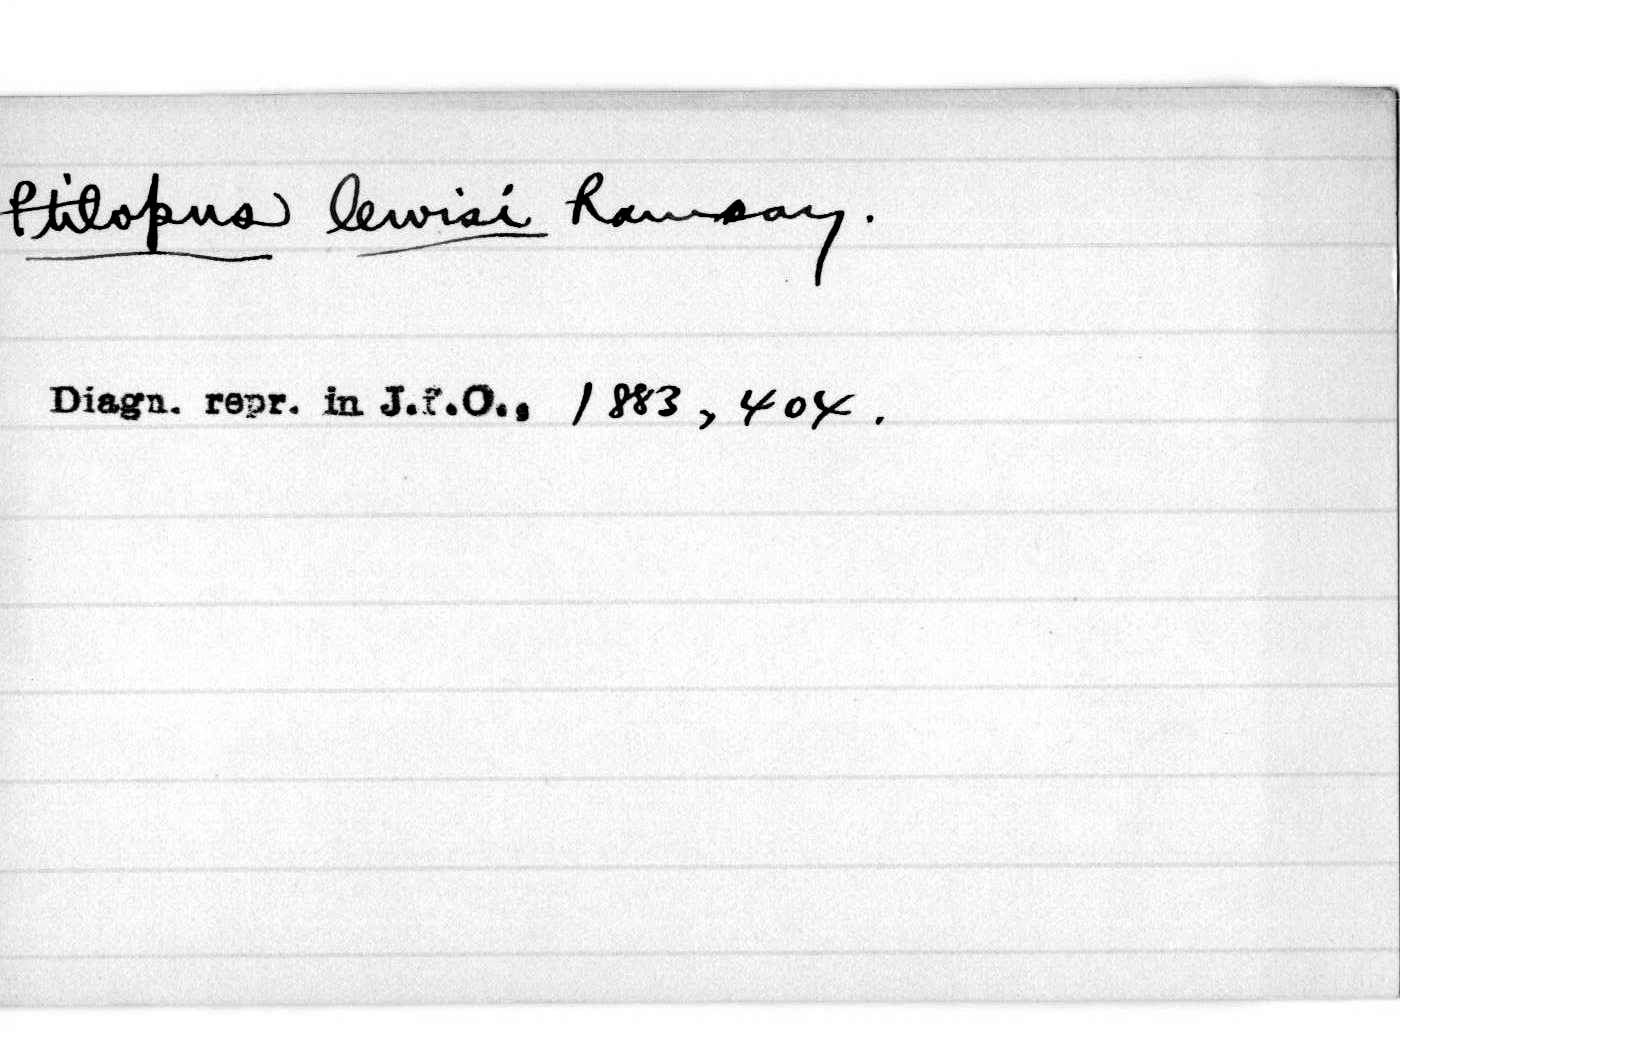 Ptilopus lewisi Ramsay.
Diagn. repr. in J.f.O., 1883, 404.